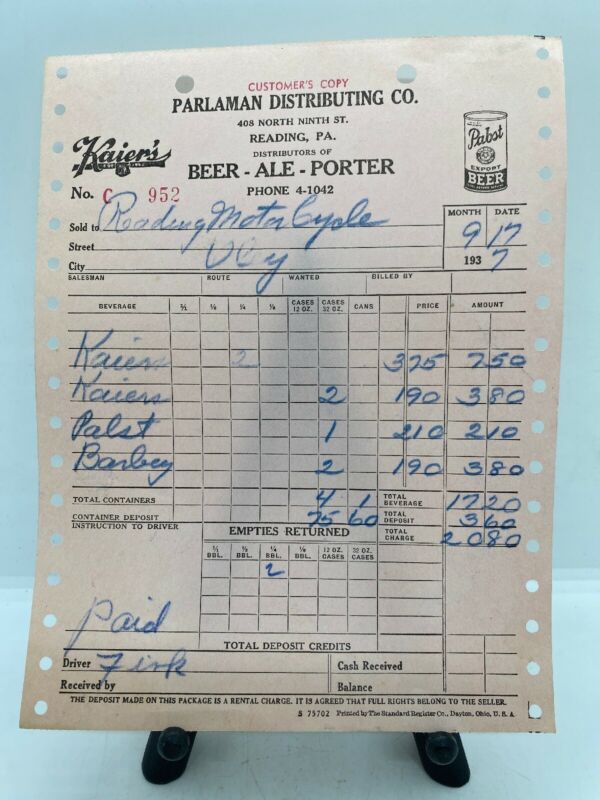 CUSTOMER'S COPY
PARLAMAN DISTRIBUTING CO.
408 NORTH NINTH ST.
READING, PA.
DISTRIBUTORS OF
BEER - ALE - PORTER
PHONE 4-1042
Kaier's
Pabst
EXPORT
BEER
No. C 952
Sold to Reading MotorCycle
Street
City Oley
MONTH DATE
9 17
1937
SALESMAN ROUTE WANTED BILLED BY
BEVERAGE ½ ¼ ⅛ CASES 12 OZ. CASES 32 OZ. CANS PRICE AMOUNT
Kaiers 2 375 750
Kaiers 2 190 380
Pabst 1 210 210
Barbey 2 190 380
TOTAL CONTAINERS 4 1 TOTAL BEVERAGE 1720
CONTAINER DEPOSIT 75 60 TOTAL DEPOSIT 360
INSTRUCTION TO DRIVER
TOTAL CHARGE 2080
EMPTIES RETURNED
½ BBL. ¼ BBL. 12 OZ. CASES 32 OZ. CASES
2
Paid
TOTAL DEPOSIT CREDITS
Driver Fink Cash Received
Received by Balance
THE DEPOSIT MADE ON THIS PACKAGE IS A RENTAL CHARGE. IT IS AGREED THAT FULL RIGHTS BELONG TO THE SELLER.
S 75702 Printed by The Standard Register Co., Dayton, Ohio, U. S. A.